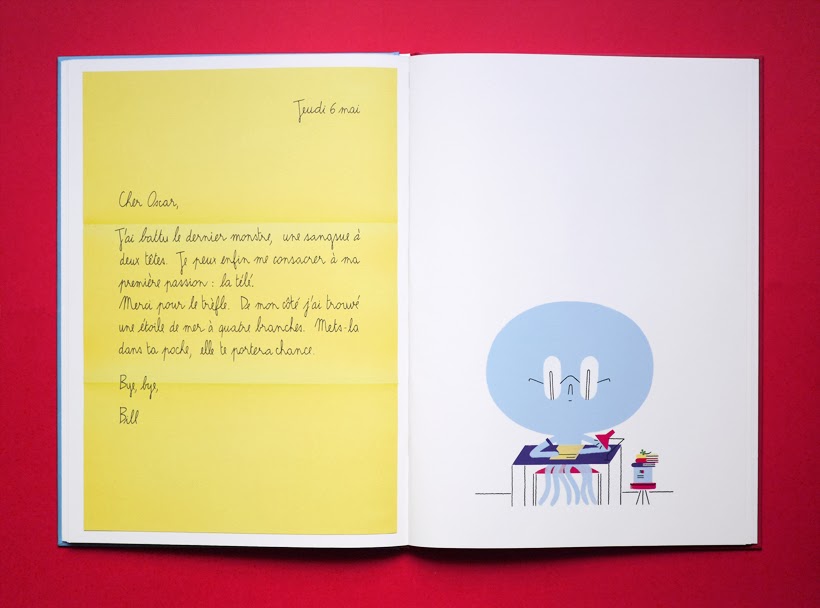 Jeudi 6 mai
Cher Oscar,
J'ai battu le dernier monstre, une sangsue à
deux têtes. Je peux enfin me consacrer à ma
première passion : la télé.
Merci pour le trèfle. De mon côté j'ai trouvé
une étoile de mer à quatre branches. Mets-la
dans ta poche, elle te portera chance.
Bye, bye,
Bill